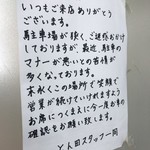 いつもご来店ありがとう
ございます。
駐車場が狭く、ご迷惑お掛け
しておりますが、最近、駐車の
マナーが悪いとの苦情が
多くなっております。
末永くこの場所で笑顔で
営業が続けていけれますよう
お席につくまえに今一度お車の
確認をお願い致します。
スタッフ一同